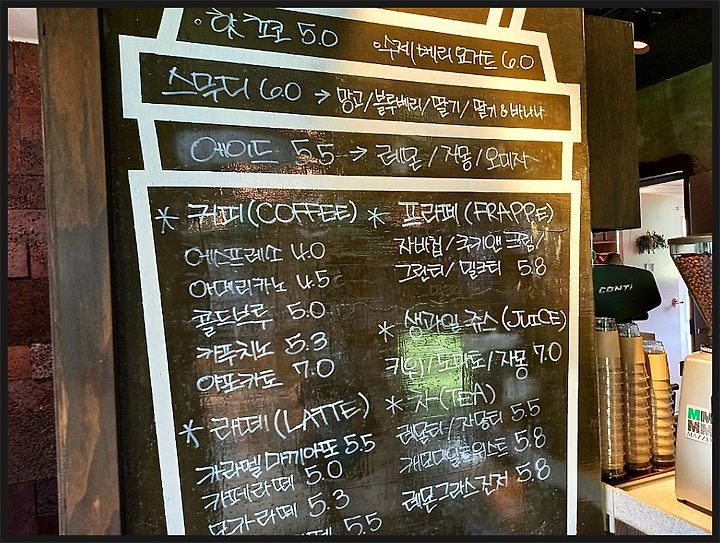 · 핫 초코 5.0
수제 베리 요거트 6.0
스무디 6.0 → 망고/블루베리/딸기/딸기&바나나
에이드 5.5 → 레몬/자몽/오미자
* 커피(COFFEE)
에스프레소 4.0
아메리카노 4.5
콜드브루 5.0
카푸치노 5.3
아포카토 7.0
* 라떼(LATTE)
카라멜마키아또 5.5
카페라떼 5.0
모카라떼 5.3
5.5
* 프라페(FRAPPE)
자바칩/쿠키앤크림/
그린티/밀크티 5.8
* 생과일쥬스(JUICE)
키위/토마토/자몽 7.0
* 차(TEA)
레몬티/자몽티 5.5
캐모마일트위스트 5.8
레몬그라스진저 5.8
CONTI